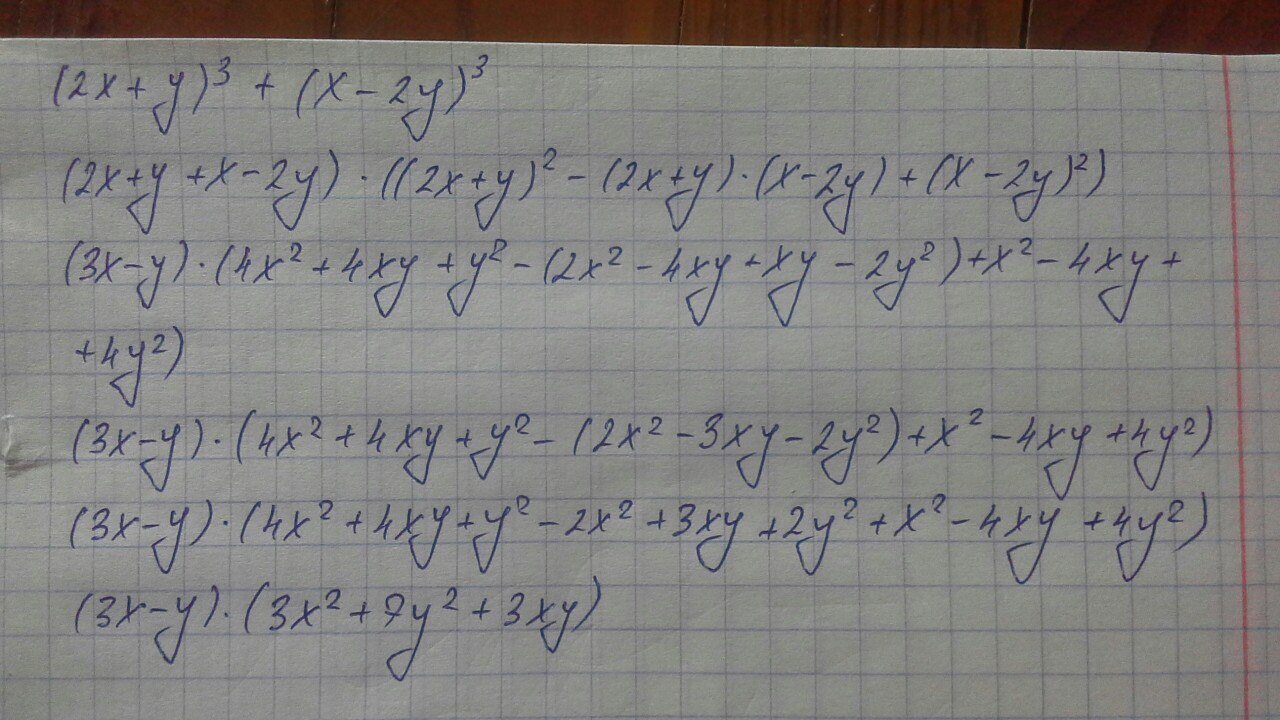 (2x+y)³ + (x-2y)³
(2x+y+x-2y)·((2x+y)²-(2x+y)·(x-2y)+(x-2y)²)
(3x-y)·(4x²+4xy+y²-(2x²-4xy+xy-2y²)+x²-4xy+
+4y²)
(3x-y)·(4x²+4xy+y²-(2x²-3xy-2y²)+x²-4xy+4y²)
(3x-y)·(4x²+4xy+y²-2x²+3xy+2y²+x²-4xy+4y²)
(3x-y)·(3x²+7y²+3xy)